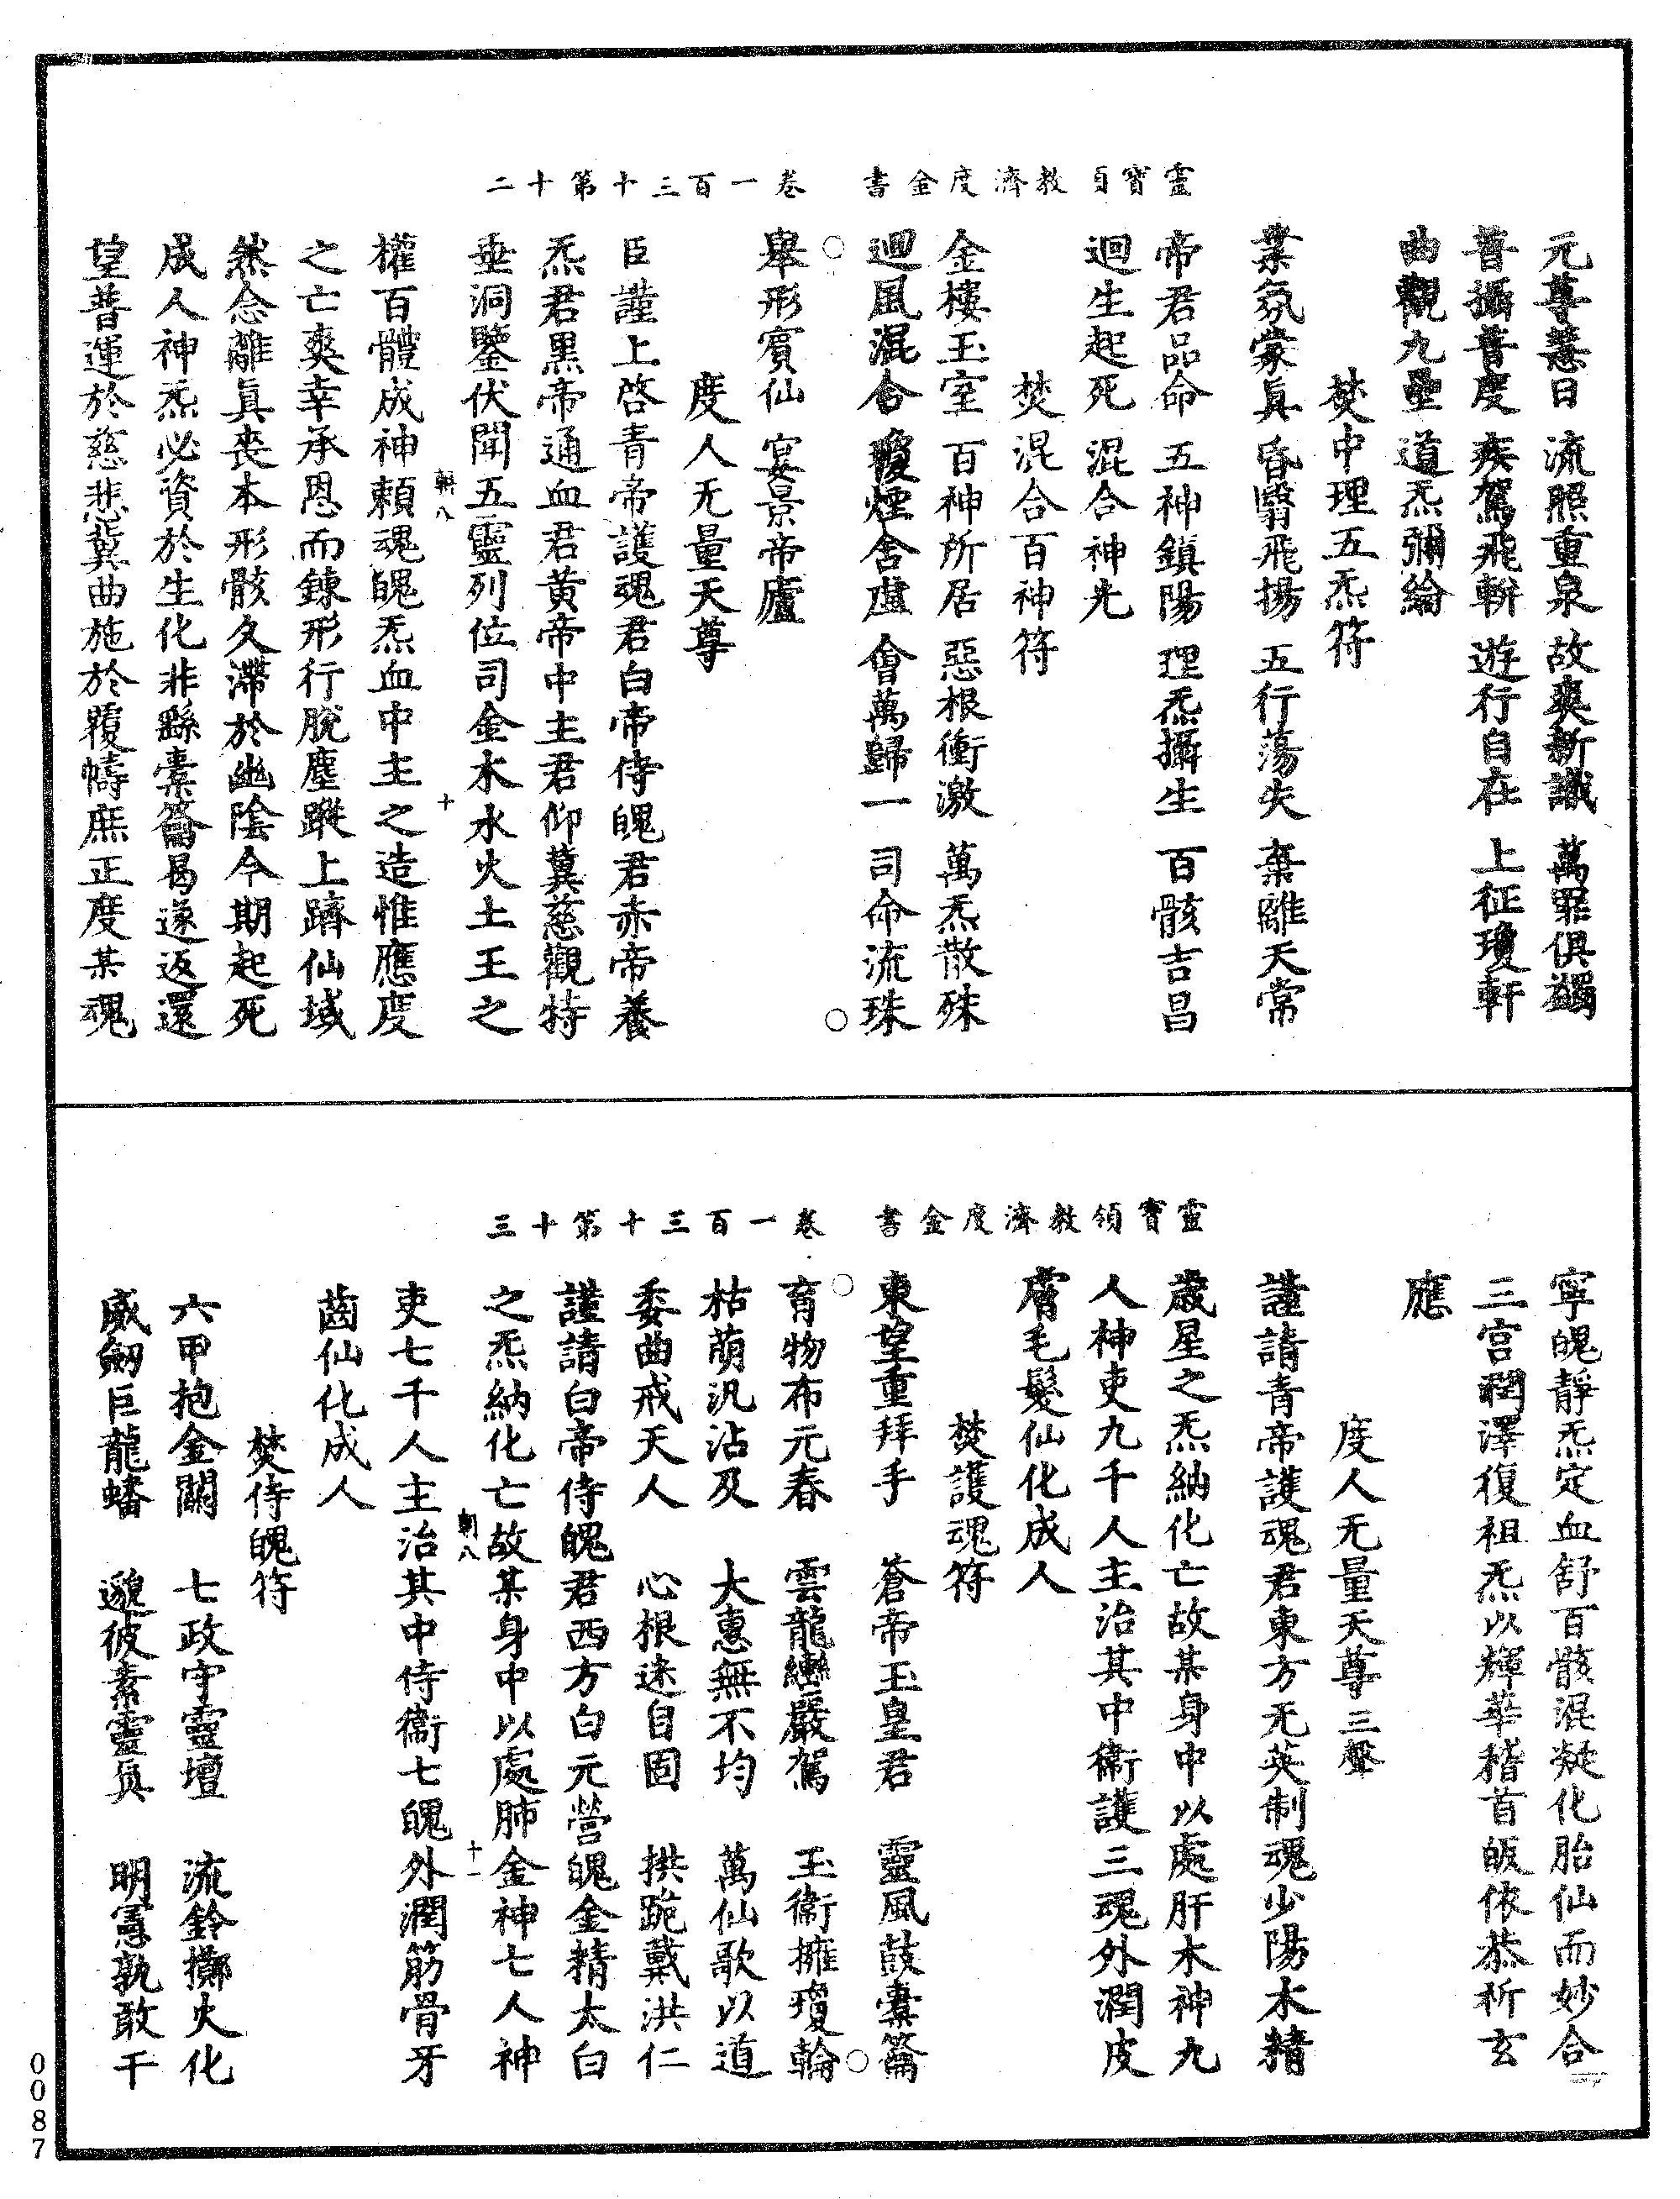 靈寶領教濟度金書　卷一百三十第十二
元尊慧日　流照重泉　故爽新識　萬罪俱蠲
普攝普度　疾駕飛軿　遊行自在　上征瓊軒
曲觀九壘　道炁彌綸
焚中理五炁符
業氛蒙眞　昏翳飛揚　五行蕩失　棄離天常
帝君品命　五神鎮陽　理炁攝生　百骸吉昌
迴生起死　混合神光
焚混合百神符
金樓玉室　百神所居　惡根衝激　萬炁散殊
迴風混合　瓊煙舍廬　會萬歸一　司命流珠
舉形賓仙　宴景帝廬
度人无量天尊
臣謹上啓青帝護魂君白帝侍魄君赤帝養
炁君黑帝通血君黃帝中主君仰冀慈觀特
垂洞鑒伏聞五靈列位司金木水火土王之
朝八　十
權百體成神賴魂魄炁血中主之造惟應度
之亡爽幸承恩而鍊形行脫塵蹤上躋仙域
然念離眞喪本形骸久滯於幽陰今期起死
成人神炁必資於生化非繇橐籥曷遂返還
望普運於慈悲冀曲施於覆幬庶正度某魂
靈寶領教濟度金書　卷一百三十第十三
寧魄靜炁定血舒百骸混凝化胎仙而妙合
三宮潤澤復祖炁以輝華稽首皈依恭祈玄
應
度人无量天尊三聲
謹請青帝護魂君東方无英制魂少陽木精
歲星之炁納化亡故某身中以處肝木神九
人神吏九千人主治其中衛護三魂外潤皮
膚毛髮仙化成人
焚護魂符
東望重拜手　蒼帝玉皇君　靈風鼓橐籥
育物布元春　雲龍巒嚴駕　玉衛擁瓊輪
枯萌汎沾及　大惠無不均　萬仙歌以道
委曲戒天人　心根迷自固　拱跪戴洪仁
謹請白帝侍魄君西方白元營魄金精太白
之炁納化亡故某身中以處肺金神七人神
朝八　十一
吏七千人主治其中侍衛七魄外潤筋骨牙
齒仙化成人
焚侍魄符
六甲抱金關　七政守靈壇　流鈴擲火化
威劒巨龍蟠　邈彼素靈眞　明憲孰敢干
0087